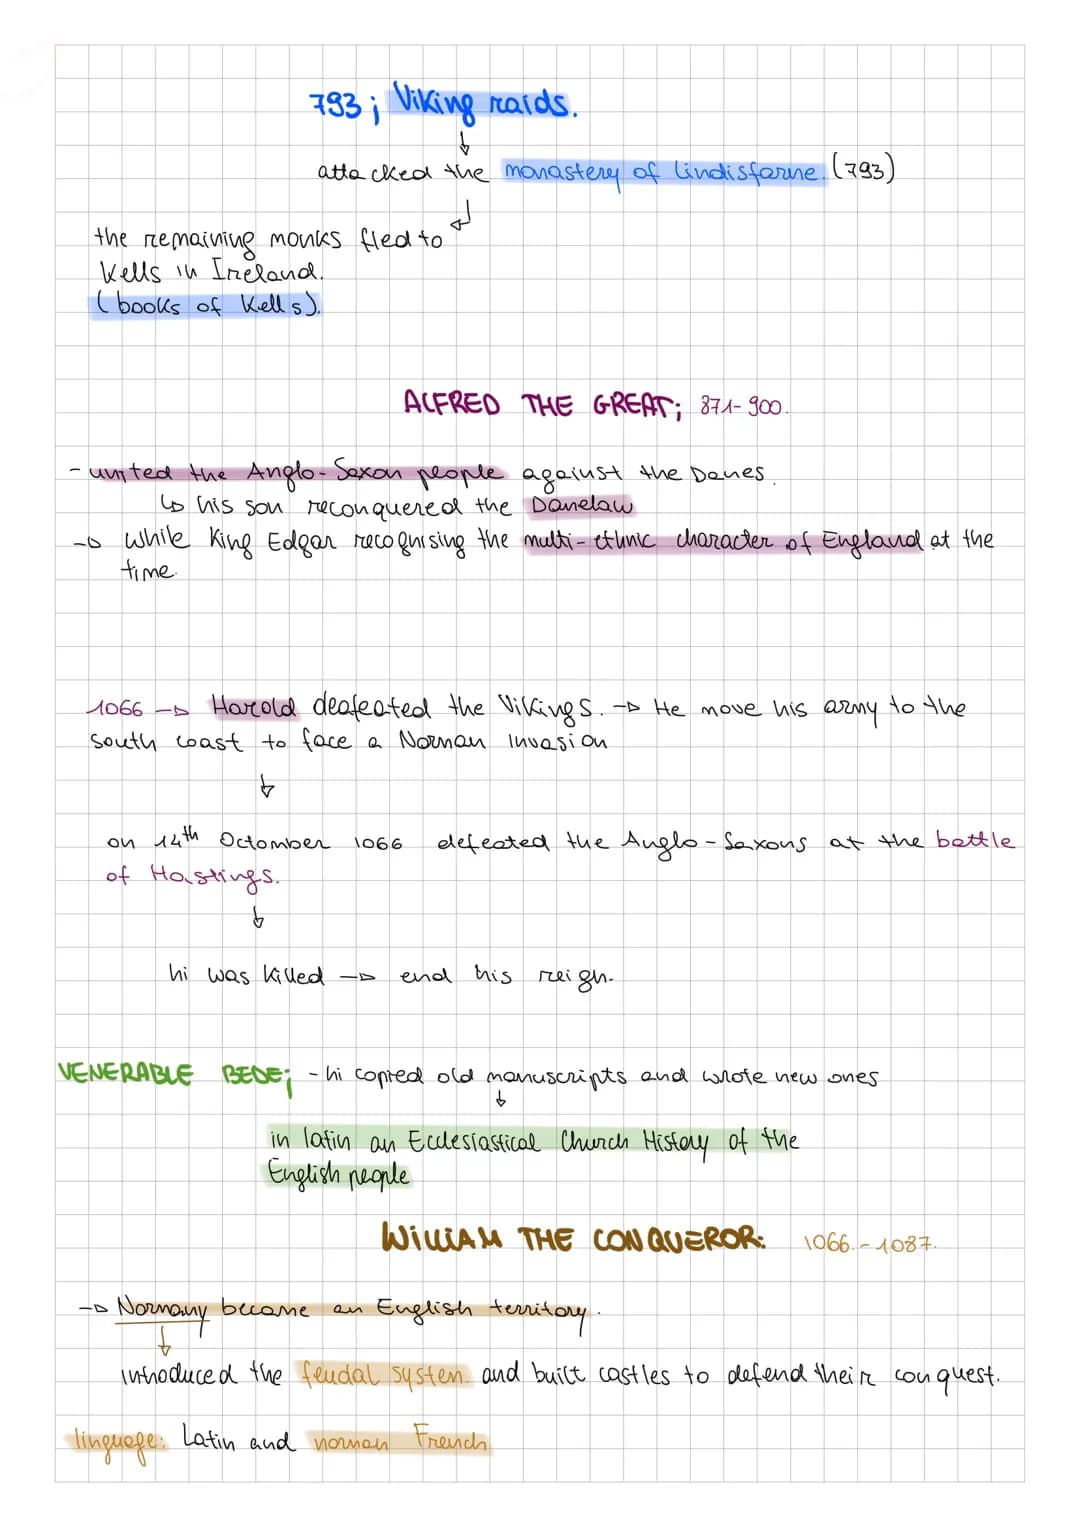 793; Viking raids.
↓
attacked the monastery of Lindisfarne. (793)
the remaining monks fled to
Kells in Ireland.
(books of Kells).
ALFRED THE GREAT; 871-900.
- united the Anglo-Saxon people against the Danes.
↳ his son reconquered the Danelaw
→ while King Edgar recognising the multi-ethnic character of England at the
time.
1066 → Harold deafeated the Vikings. → He move his army to the
south coast to face a Norman invasion
↓
on 14th Octomber 1066 defeated the Anglo-Saxons at the battle
of Hastings.
↓
hi was killed → end his reign.
VENERABLE BEDE; - hi copied old manuscripts and wrote new ones
↓
in latin an Ecclesiastical Church History of the
English people
WILLIAM THE CONQUEROR: 1066.-1087.
→ Normany became an English territory.
↓
introduced the feudal system. and built castles to defend their conquest.
linguage: Latin and norman French